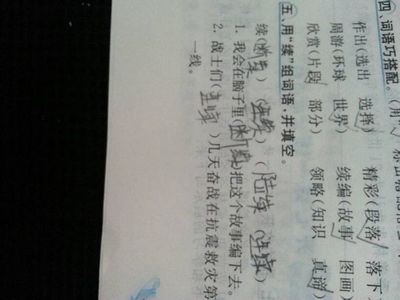 四、词语巧搭配。(用
作出(选出 选择) 精彩(段落 落下
周游(环球 世界) 续编(故事 图画
欣赏(片段 部分) 领略(知识 真谛
五、用“续”组词语,并填空。
续(断续) (连续) (陆续) (连续)
1. 我会在脑子里( )把这个故事编下去。
2. 战士们(连续)几天奋战在抗震救灾第
一线。